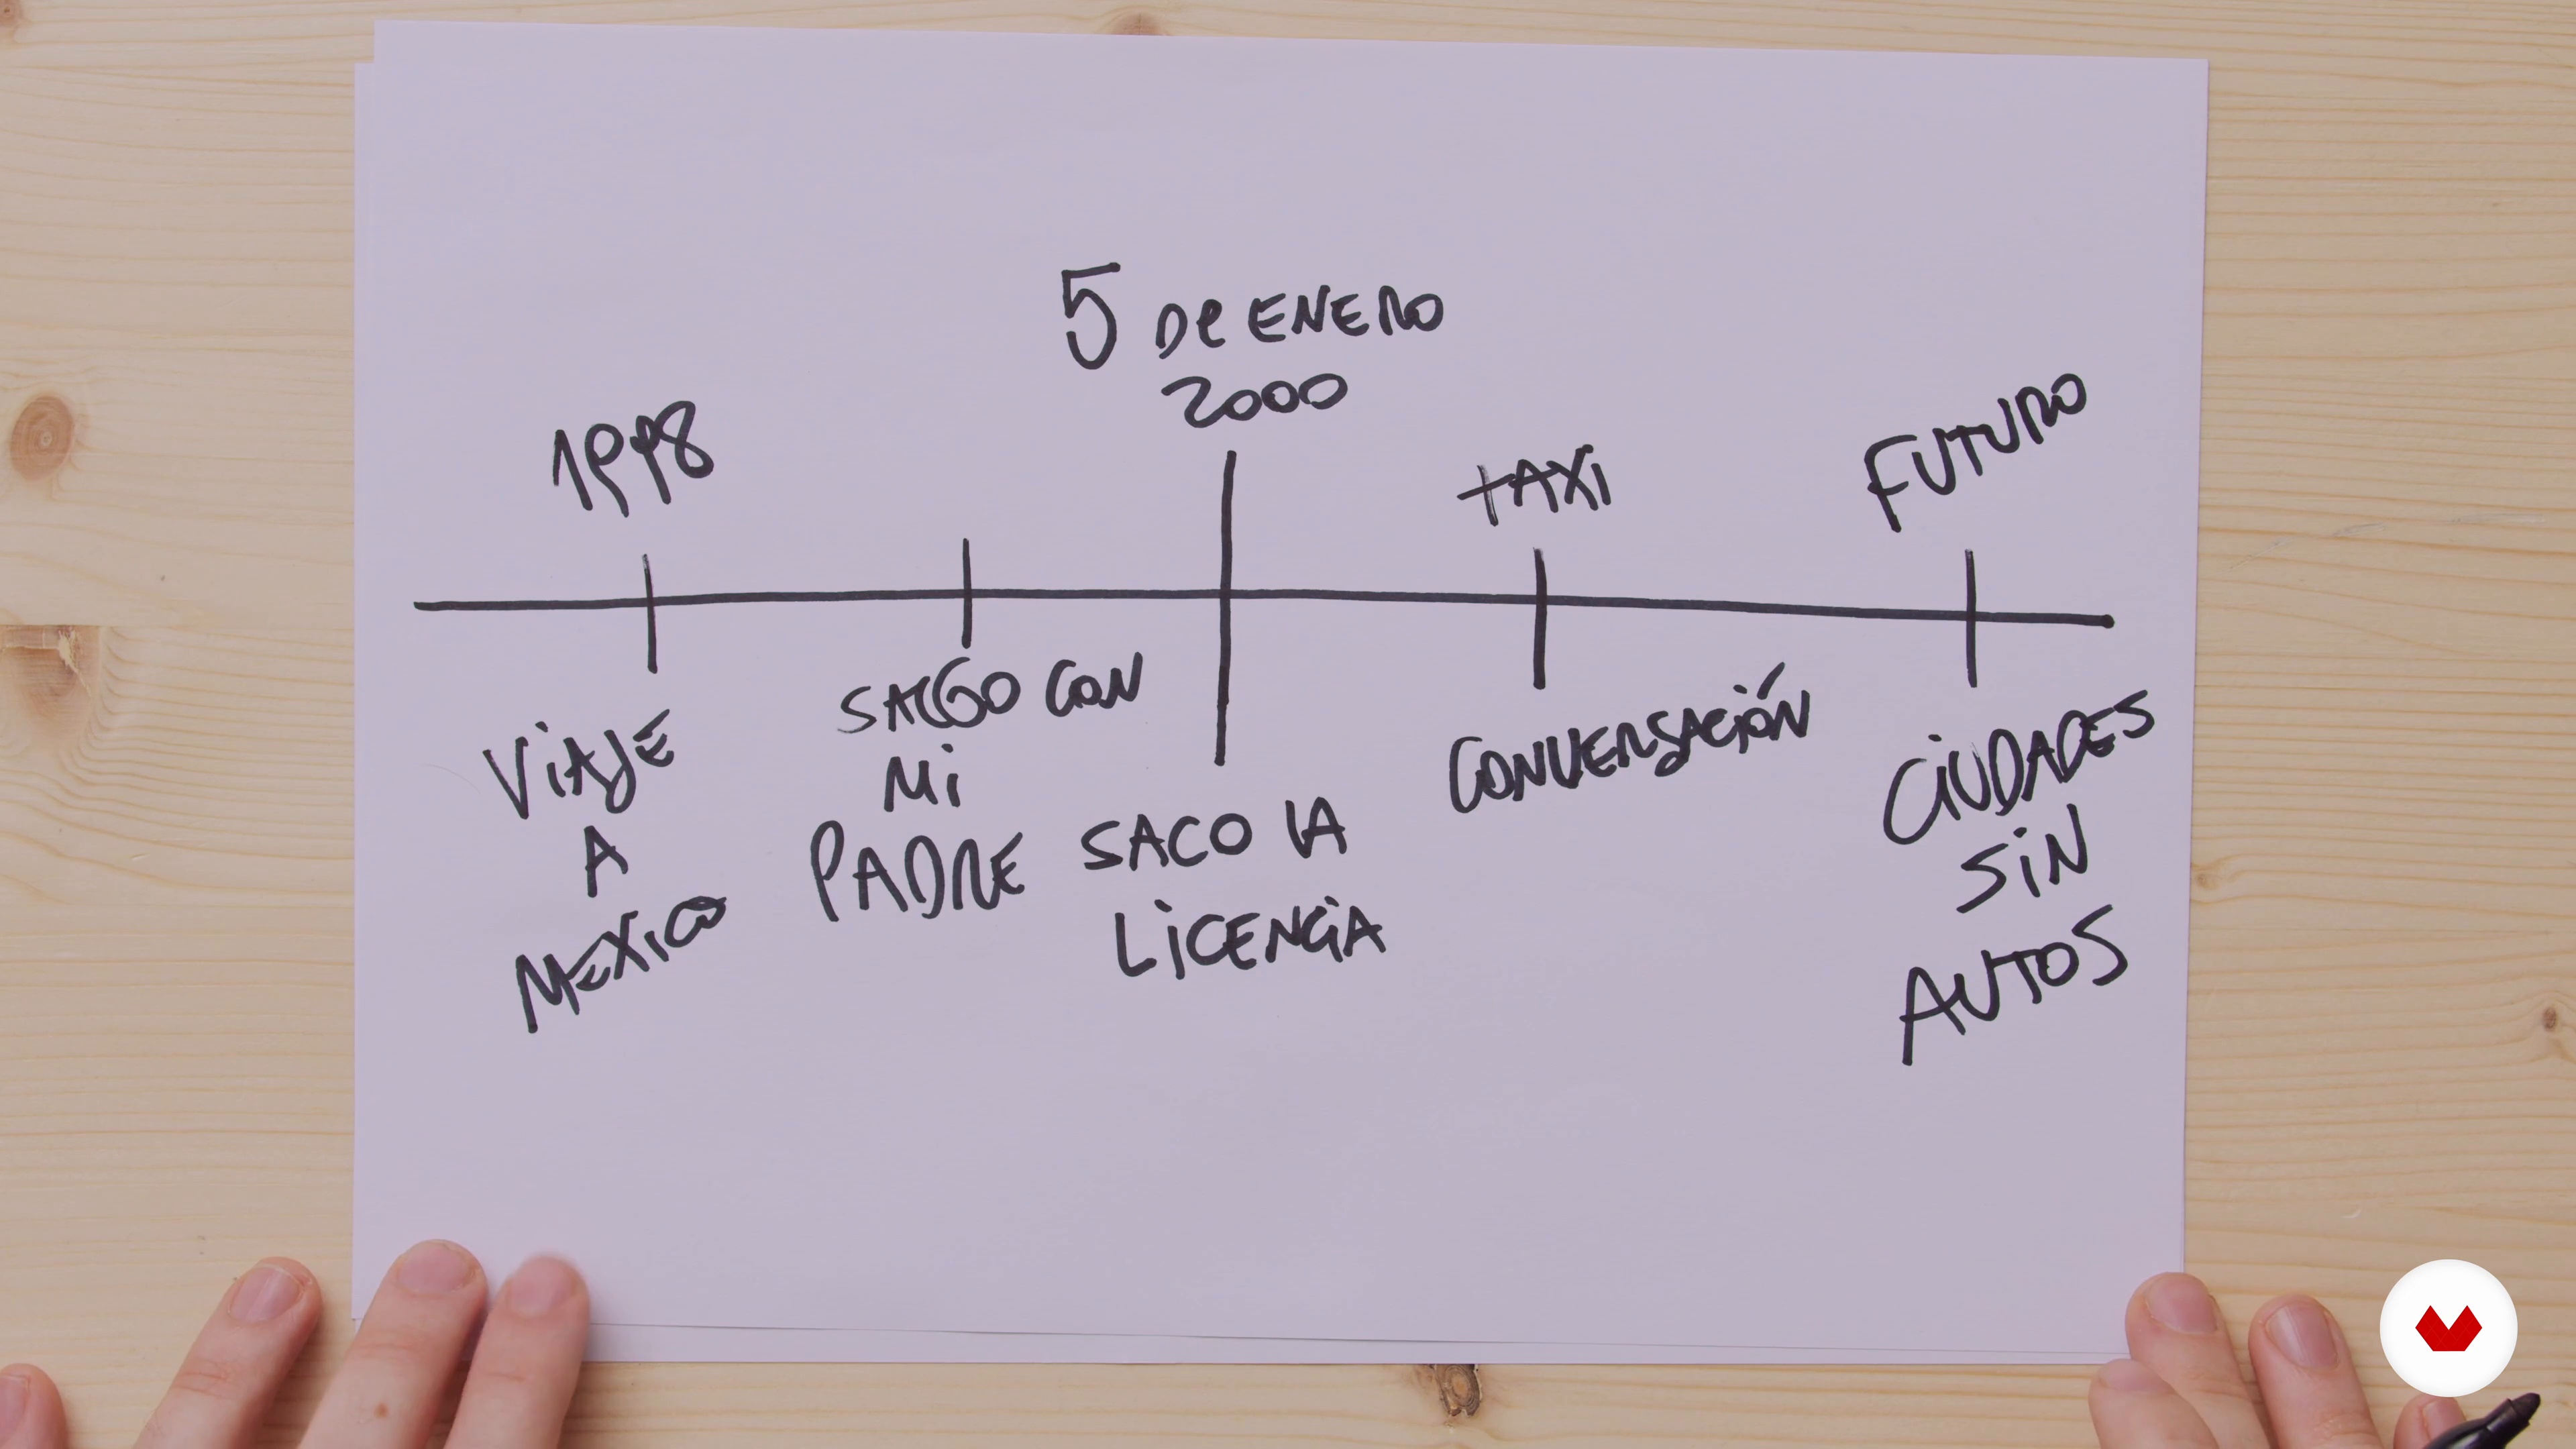 5 De ENERO
2000
1998
TAXi
FUTURO
SALGO CON
Mi
PADRE
ViAJE
A
MEXiCO
SACO LA
LiCENCiA
CONVERSACiÓN
CiUDADES
SiN
AUTOS